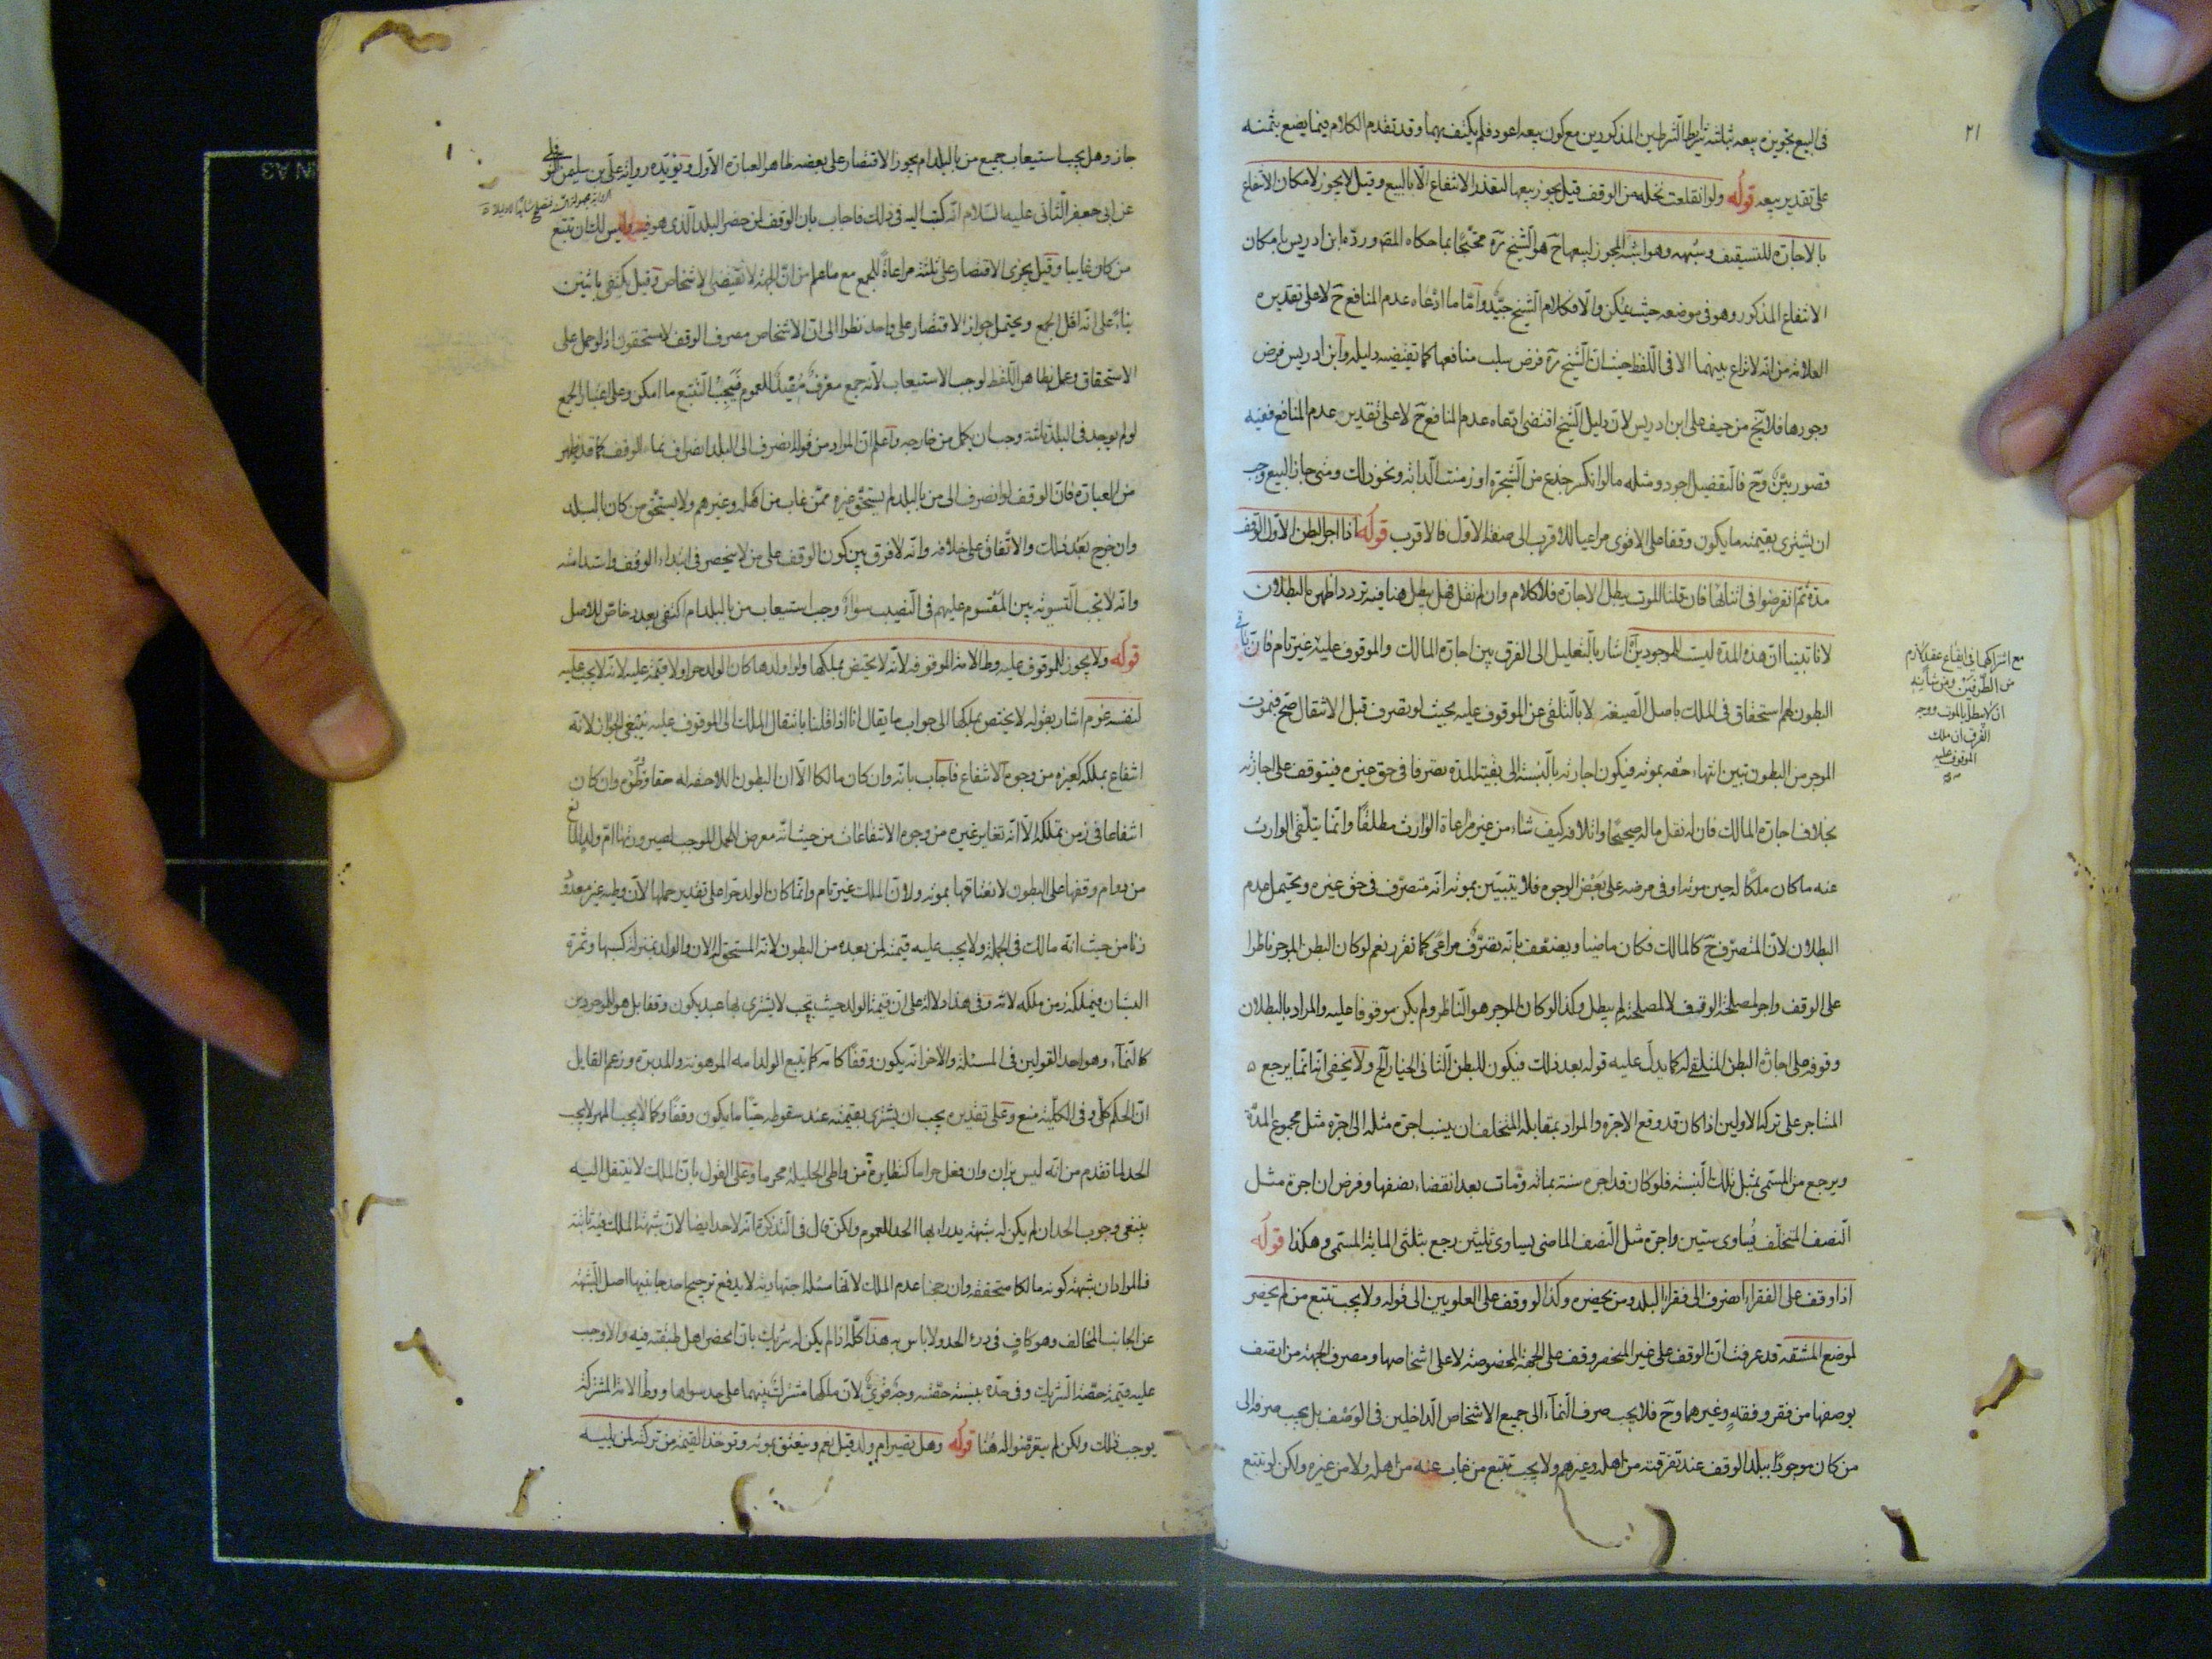 ٢١
فى البيع تجويزه بيعه بثلثة شرايط الشرطين المذكورين مع كون بيعه اعود فلم يكتف بهما وقد تقدم الكلام فيما يصنع بثمنه
على تقدير بيعه قوله ولو انقلعت نخله من الوقف قيل يجوز بيعها لتعذر الانتفاع الا بالبيع وقيل لا يجوز لامكان الانتفاع
بالاجارة للتسقيف وشبهه وهو اشبه المجوز لبيعها ح هو الشيخ ره محتجا بما حكاه المص ورده ابن ادريس بامكان
الانتفاع المذكور وهو فى موضعه حيث يمكن والا فكلام الشيخ جيد واما ما ادعاه عدم المنافع ح لا على تقديره
العلامة من انه لا نزاع بينهما الا فى اللفظ حيث ان الشيخ ره فرض سلب منافعها كما تقتضيه دليله وابن ادريس فرض
وجودها فلا يخ من حيف على ابن ادريس لان دليل الشيخ اقتضى ادعاه عدم المنافع ح لا على تقدير عدم المنافع ففيه
قصور بين وح فالتفصيل اجود ومثله ما لو انكسر جذع من الشجرة او زمنت الدابة ونحو ذلك ومتى جاز البيع وجب
ان يشترى بقيمته ما يكون وقفا على الاقوى مراعيا للاقرب الى صفة الاول فالاقرب قوله اذا اجر البطن الاول الوقف
مدة ثم انقرضوا فى اثنائها فان قلنا الموت يبطل الاجارة فلا كلام وان لم نقل فهل يبطل هنا فيه تردد اظهره البطلان
لانا تبينا ان هذه المدة ليست للموجودين اشار بالتعليل الى الفرق بين اجارة المالك والموقوف عليه غير تام فان باقى
البطون لهم استحقاق فى الملك باصل الصيغة لا بالتلقى عن الموقوف عليه بحيث لو تصرف قبل الانتقال صح فبموت
الموجر من البطون تبين انتهاء حقه بموته فيكون اجارته بالنسبة الى بقية المدة تصرفا فى حق غيره فيتوقف على اجازته
بخلاف اجارة المالك فان له نقل ماله صحيحا واتلافه كيف شاء من غير مراعاة الوارث مطلقا وانما يتلقى الوارث
عنه ما كان ملكا له حين موته او فى مرضه على بعض الوجوه فلا يتبين بموته انه متصرف فى حق غيره ويحتمل عدم
البطلان لان المتصرف ح كالمالك فكان ماضيا ويضعف بانه تصرف مراعى كما تقرر نعم لو كان البطن الموجر ناظرا
على الوقف واجر لمصلحة الوقف لا لمصلحته لم يبطل وكذا لو كان الموجر هو الناظر ولم يكن موقوفا عليه والمراد بالبطلان
وقوفه على اجازة البطن المتلقى له كما يدل عليه قوله بعد ذلك فيكون للبطن الثانى الخيار الخ ولا يخفى انه انما يرجع
المستاجر على تركة الاولين اذا كان قد وقع الاجرة والمراد بمقابلة المتخلف ان ينسب اجرة مثله الى اجرة مثل مجموع المدة
ويرجع من المسمى بمثل تلك النسبة فلو كان قد اجره سنة بمائة ومات بعد انقضاء نصفها وفرض ان اجرة مثل
النصف المتخلف يساوى ستين واجرة مثل النصف الماضى يساوى ثلثين رجع بثلثى المائة المسمى وهكذا قوله
اذا وقف على الفقراء انصرف الى فقراء البلد ومن يحضره وكذا لو وقف على العلويين الى قوله ولا يجب تتبع من لم يحضر
لموضع المشقة قد عرفت ان الوقف على غير المنحصر وقف على الجهة المخصوصة لا على اشخاصها ومصرف الجهة من اتصف
بوصفها من فقر وفقه وغيرهما وح فلا يجب صرف النماء الى جميع الاشخاص الداخلين فى الوصف بل يجب صرفه الى
من كان موجودا ببلد الوقف عند تفرقته من اهله وغيرهم ولا يجب تتبع من غاب عنه من اهله ولا من غيره ولكن لو تتبع
مع اشتراكهما فى ايقاع عقد لازم
من الطرفين ومن شانه
ان لا يبطل بالموت ووجه
الفرق ان ملك
الموقوف عليه
صح
جاز وهل يجب استيعاب جميع من بالبلد ام يجوز الاقتصار على بعضه ظاهر العبارة الاول ويؤيده رواية على بن سليمن
عن ابى جعفر الثانى عليه السلام انه كتب اليه فى ذلك فاجاب بان الوقف لمن حضر البلد الذى هو فيه وليس لك ان تتبع
من كان غايبا وقيل يجزى الاقتصار على ثلثة مراعاة للجمع مع ما علم من ان الجهة لا تقتضى الاشخاص وقيل يكتفى باثنين
بناء على انه اقل الجمع ويحتمل جواز الاقتصار على واحد نظرا الى ان الاشخاص مصرف الوقف لا مستحقون اذ لو حمل على
الاستحقاق وعمل بظاهر اللفظ لوجب الاستيعاب لانه جمع معرف مفيد للعموم فيجب التتبع ما امكن وعلى اعتبار الجمع
لو لم يوجد فى البلد ثلثة وجب ان يكمل من خارجه واعلم ان المراد من قوله انصرف الى البلد انصراف نماء الوقف كما قد يظهر
من العبارة فان الوقف لو انصرف الى من بالبلد لم يستحق غيره ممن غاب من اهله وغيرهم ولا يستحق من كان بالبلد
وان خرج بعد ذلك والاتفاق على خلافه وانه لا فرق بين كون الوقف على من لا ينحصر فى ابتداء الوقف واستدامته
وانه لا تجب التسوية بين المقسوم عليهم فى النصيب سواء وجب استيعاب من بالبلد ام اكتفى بعدد خاص للاصل
قوله ولا يجوز للموقوف عليه وطا الامة الموقوفة لانه لا يختص بملكها ولو اولدها كان الولد حرا ولا قيمة عليه لانه لا يجب عليه
لنفسه غرم اشار بقوله لا يختص بملكها الى جواب ما يقال انا اذا قلنا بانتقال الملك الى الموقوف عليه ينبغى الجواز لانه
انتفاع بملكه كغيره من وجوه الانتفاع فاجاب بانه وان كان مالكا الا ان البطون اللاحقة له حقا وان كان
انتفاعا فى زمن تملكه الا انه تغاير غيره من وجوه الانتفاعات من حيث انه معرض للحمل الموجب لصيرورتها ام ولد المانع
من دوام وقفها على البطون لانعتاقها بموته ولان الملك غير تام وانما كان الولد حرا على تقدير حملها لان وطيه غير معدود
زنا من حيث انه مالك فى الجملة ولا يجب عليه قيمته لمن بعده من البطون لانه المستحق له الان والولد بمنزلة كسبها وثمرة
البستان فيتملكه زمن ملكه لانه وفى هذا دلالة على ان قيمة الولد حيث تجب لا يشترى بها عبد يكون وقفا بل هو للموجودين
كالنماء وهو احد القولين فى المسئلة والاخر انه يكون وقفا كامه كما يتبع الولد امه المرهونة والمدبرة وزعم القايل
ان الحكم كلى وفى الكلية منع وعلى تقديره يجب ان يشترى بقيمته عند سقوطه حيا ما يكون وقفا وكما لا يجب المهر لا يجب
الحد لما تقدم من انه ليس بزان وان فعل حراما كنظايره من واطى الحليلة محرما وعلى القول بان الملك لا ينتقل اليه
ينبغى وجوب الحد ان لم يكن له شبهة يدراء بها الحد للعموم ولكن قال فى التذكرة انه لا حد ايضا لان شبهة الملك فيه ثابتة
فالمراد ان شبهة كونه مالكا متحققة وان رجحنا عدم الملك لانها مسئلة اجتهادية لا يدفع ترجيح احد جانبيها اصل الشبهة
عن الجانب المخالف وهو كاف فى درء الحد ولا باس به هذا كله اذا لم يكن له شريك بان انحصر اهل طبقته فيه والا وجب
عليه قيمة حصة الشريك وفى حده بنسبة حصته وجه قوى لان ملكها مشترك بينهما على حد سواء ووطا الامة المشتركة
يوجب ذلك ولكن لم يتعرضوا له هنا قوله وهل تصير ام ولد قيل نعم وينعتق بموته وتوخذ القيمة من تركته لمن يليه